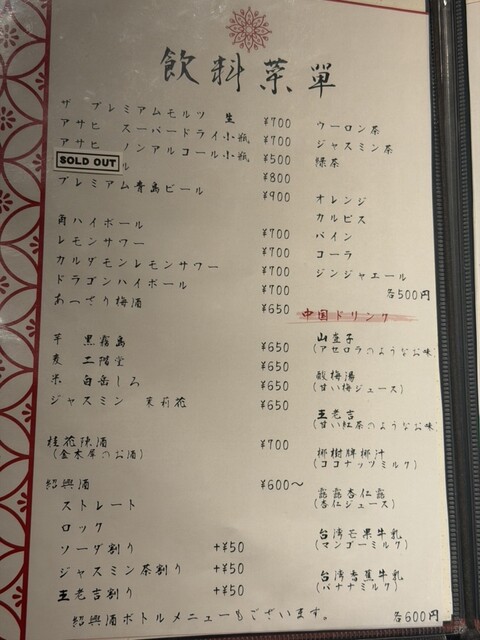 飲料菜單
ザ プレミアムモルツ 生 ¥700
アサヒ スーパードライ小瓶 ¥700
アサヒ ノンアルコール小瓶 ¥500
SOLD OUT ル ¥800
プレミアム青島ビール ¥900
角ハイボール ¥700
レモンサワー ¥700
カルダモンレモンサワー ¥700
ドラゴンハイボール ¥700
あっさり梅酒 ¥650
芋 黒霧島 ¥650
麦 二階堂 ¥650
米 白岳しろ ¥650
ジャスミン 茉莉花 ¥650
桂花陳酒 ¥700
(金木犀のお酒)
紹興酒 ¥600〜
ストレート
ロック
ソーダ割り +¥50
ジャスミン茶割り +¥50
王老吉割り +¥50
紹興酒ボトルメニューもございます。
ウーロン茶
ジャスミン茶
緑茶
オレンジ
カルピス
パイン
コーラ
ジンジャエール
各500円
中国ドリンク
山査子
(アセロラのようなお味
酸梅湯
(甘い梅ジュース)
王老吉
(甘い紅茶のようなお味
椰樹牌椰汁
(ココナッツミルク)
露露杏仁露
(杏仁ジュース)
台湾芒果牛乳
(マンゴーミルク)
台湾香蕉牛乳
(バナナミルク)
各600円